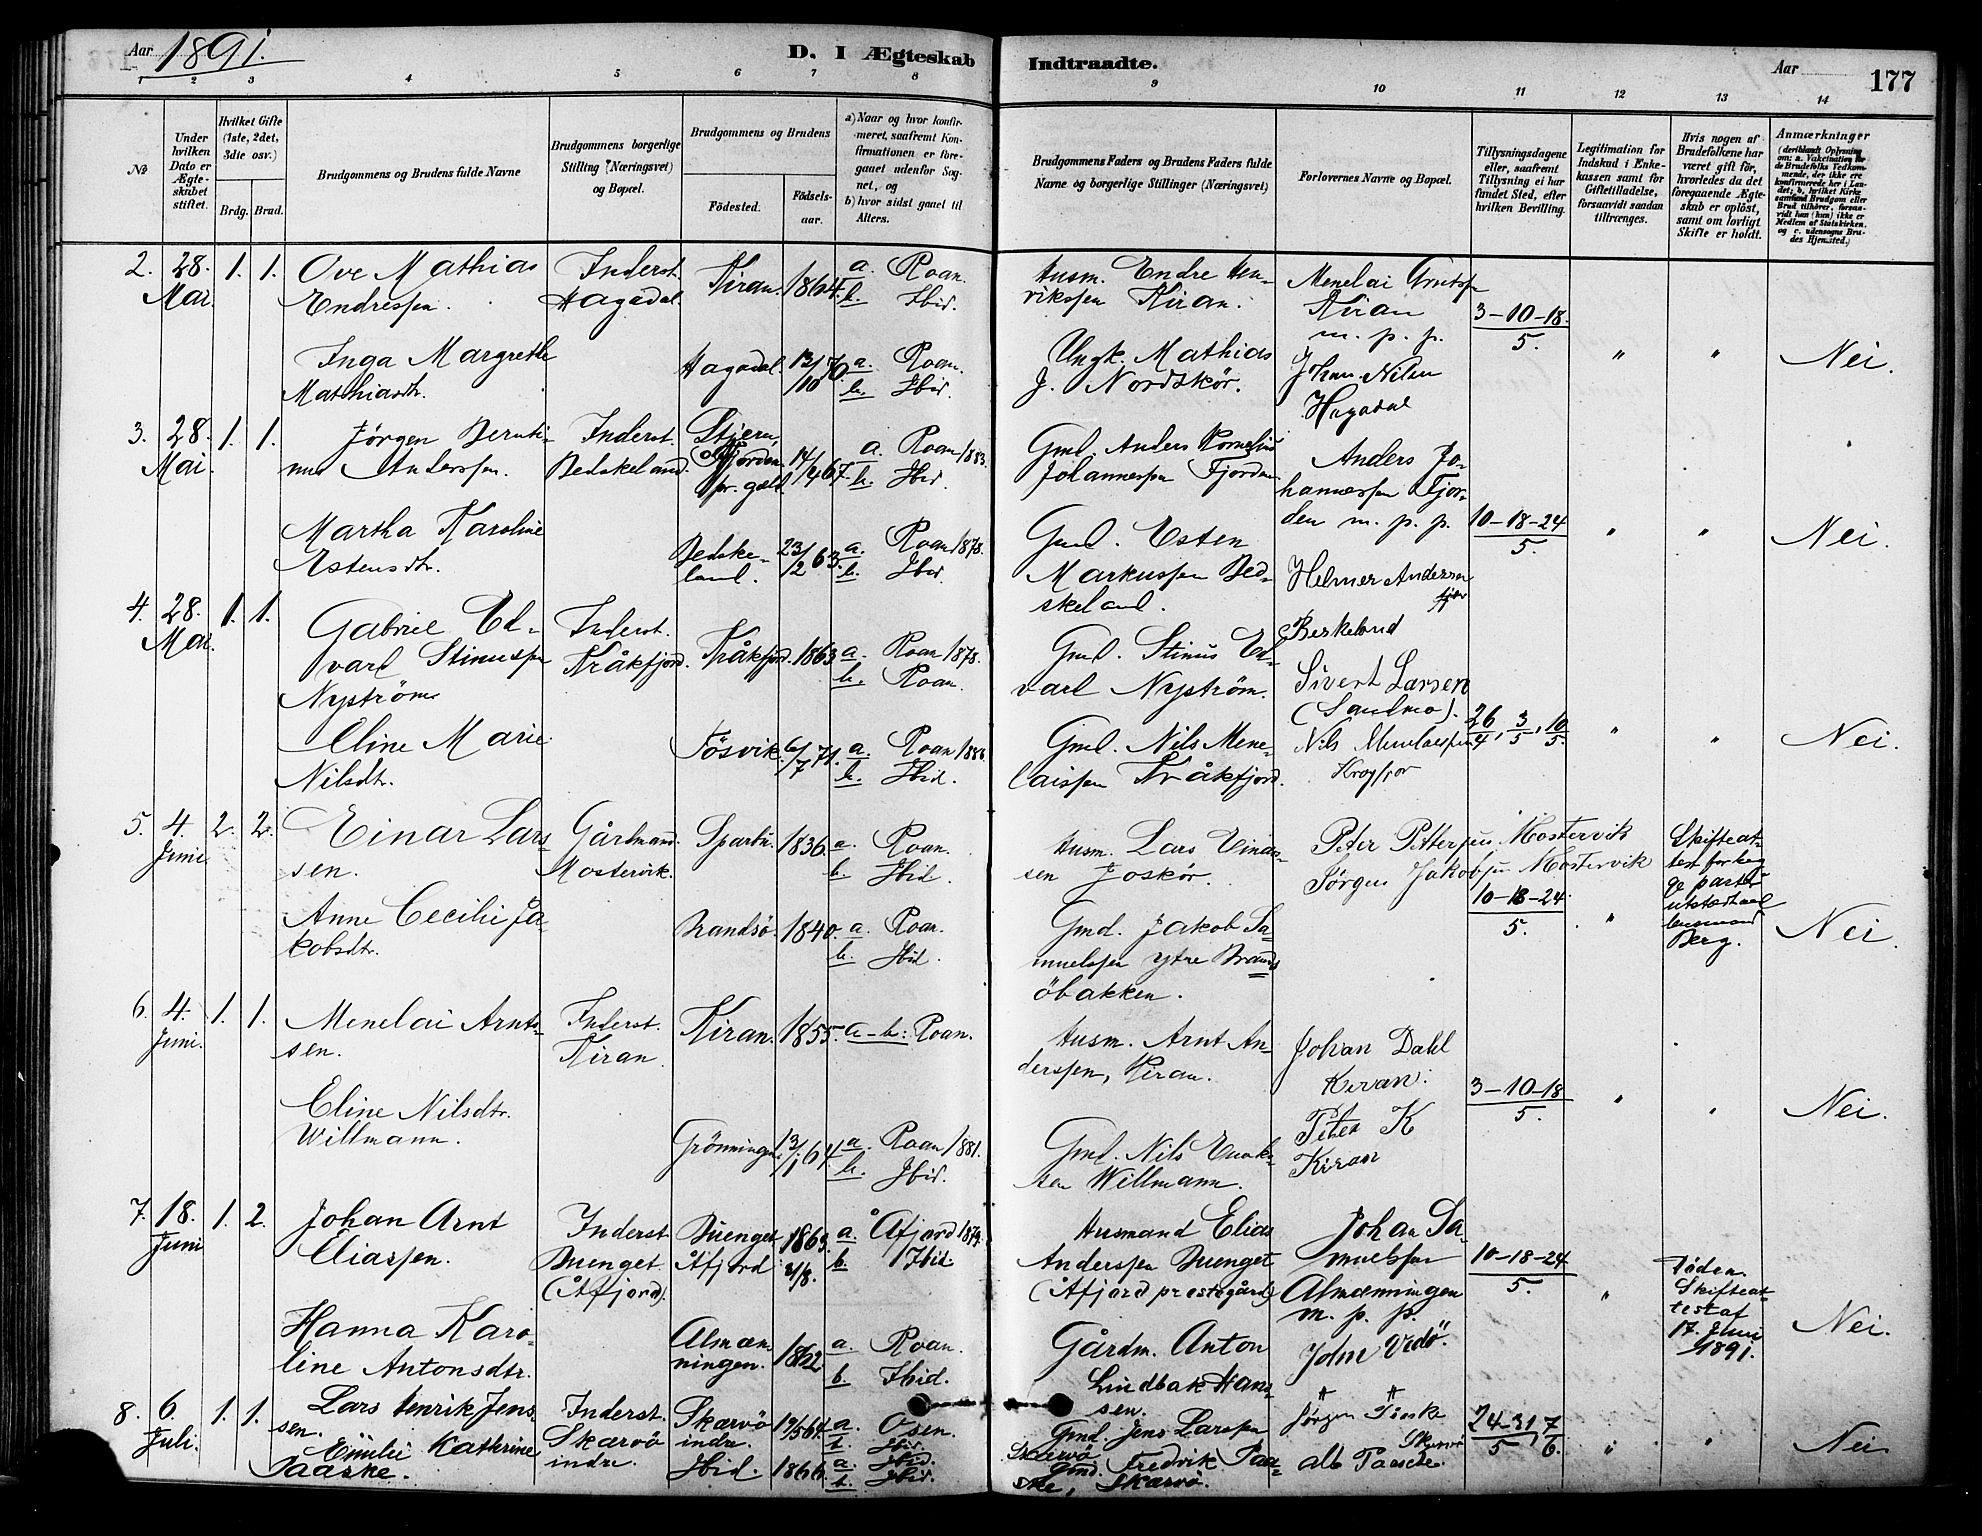 Aar 1891. D. I Ægteskab Indtraadte. Aar 177
1 2 3 4 5 6 7 8 9 10 11 12 13 14
№
Under hvilken Dato er Ægteskabet stiftet.
Hvilket Gifte (1ste, 2det, 3die osv.)
Brdg. Brud.
Brudgommens og Brudens fulde Navne
Brudgommens borgerlige Stilling (Næringsvei) og Bopæl.
Brudgommens og Brudens
Födested. Födsels-aar.
a) Naar og hvor konfirmeret, saafremt Konfirmationen er foregaaet udenfor Sognet, og
b) hvor sidst gaaet til Alters.
Brudgommens Faders og Brudens Faders fulde Navne og borgerlige Stillinger (Næringsvei)
Forlovernes Navne og Bopæl.
Tillysningsdagene eller, saafremt Tillysning ei har fundet Sted, efter hvilken Bevilling.
Legitimation for Indskud i Enkekassen samt for Giftetilladelse, forsaavidt saadan tiltrænges.
Hvis nogen af Brudefolkene har været gift för, hvorledes da det foregaaende Ægteskab er oplöst, samt om lovligt Skifte er holdt.
Anmærkninger
2. 28. Mai. 1. 1. Ove Mathias Endressen. Inderst. Hagadal. Kiran. 1864. a. Roan. b. Ibid. Husm. Endre Henrikssen Kiran. Menelai Kiran m. p. p. 3-10-18. 5.
Inga Margrethe Mathiasdtr. Hagadal. 13/10 70. a. Roan. b. Ibid. Ungk. Mathias J. Nordskör. Johan Nilsen Hagadal " " Nei.
3. 28. Mai. 1. 1. Jørgen Berntinus Anderssen. Inderst. Beskeland. Stjern, Fjorden pr. gæld. 67. a. Roan 1883. b. Ibid. Gmd. Anders Kornelius Johannessen Fjorden Anders Johannessen Fjorden m. p. p. 10-18-24 5.
Martha Karoline Estensdtr. Beskeland. 23/2 63. a. Roan 1878. b. Ibid. Gmd. Esten Markussen Beskeland. Helmer Andersen Berkeland " " Nei.
4. 28. Mai. 1. 1. Gabriel Edvard Stinussen Nyström Inderst. Kråkfjord. Kråkfjord. 1863 a. Roan 1878. b. Roan. Gmd. Stinus Edvard Nyström. Sivert Larsen (Sandmo). 26/4, 3/5, 10/5.
Eline Marie Nilsdtr. Fösvik. 6/7 71. a. Roan 1886. b. Ibid. Gmd. Nils Menelaissen Kråkfjord. Nils Menelaessen Kragfjor " " Nei.
5. 4. Juni 2. 2. Einar Larssen. Gårdmand. Mostervik. Sparbu. 1836. a. Roan. b. Ibid. Husm. Lars Einarssen Joskör. Peter Pettersen Mostervik Jörgen Jakobsen Mostervik 10-18-24 5. Skifteattest for begge parter utstedt av lensmand Berg.
Anne Cecilie Jakobsdtr. Brandsö. 1840. a. Roan. b. Ibid. Gmd. Jakob Samuelssen ytre Brandsöbakken. " Nei.
6. 4. Juni. 1. 1. Menelai Arntssen. Inderst. Kiran Kiran. 1855. a-b: Roan. Husm. Arnt Anderssen, Kiran. Johan Dahl Kiran. 3-10-18 5.
Eline Nilsdtr. Willmann. Grönningen. 13/1 64 a. Roan 1881. b. Ibid. Gmd. Nils Willmann. Peter K Kiran " " Nei.
7. 18. Juni 1. 2. Johan Arnt Eliassen. Inderst Buenget. (Åfjord). Buenget Åfjord 1863. a. Åfjord 1879. b. Ibid Husmand Elias Anderssen Buenget (Åfjord prestegård) Johan Samuelssen Almenningen m. p. p. 10-18-24 5. Döden. Skifteattest af 17. Juni 1891.
Hanna Karoline Antonsdtr. Almenningen. 1862 a. Roan. b. Ibid. Gårdm. Anton Lindbak Hanssen. John Vedö. " Nei.
8. 6. Juli. 1. 1. Lars Henrik Jenssen. Inderst. Skærvö indre. Skærvö indre. 19/5 64. a. Osen. b. Ibid. Gmd. Jens Larssen Skærvö. Jørgen 24-31/5, 7/6.
Emilie Kathrine Paaske. Ibid. 1866. a. Ibid. b. Ibid. Gmd. Fredrik Paaske, Skærvö. Paasche Skjærvö " " Nei